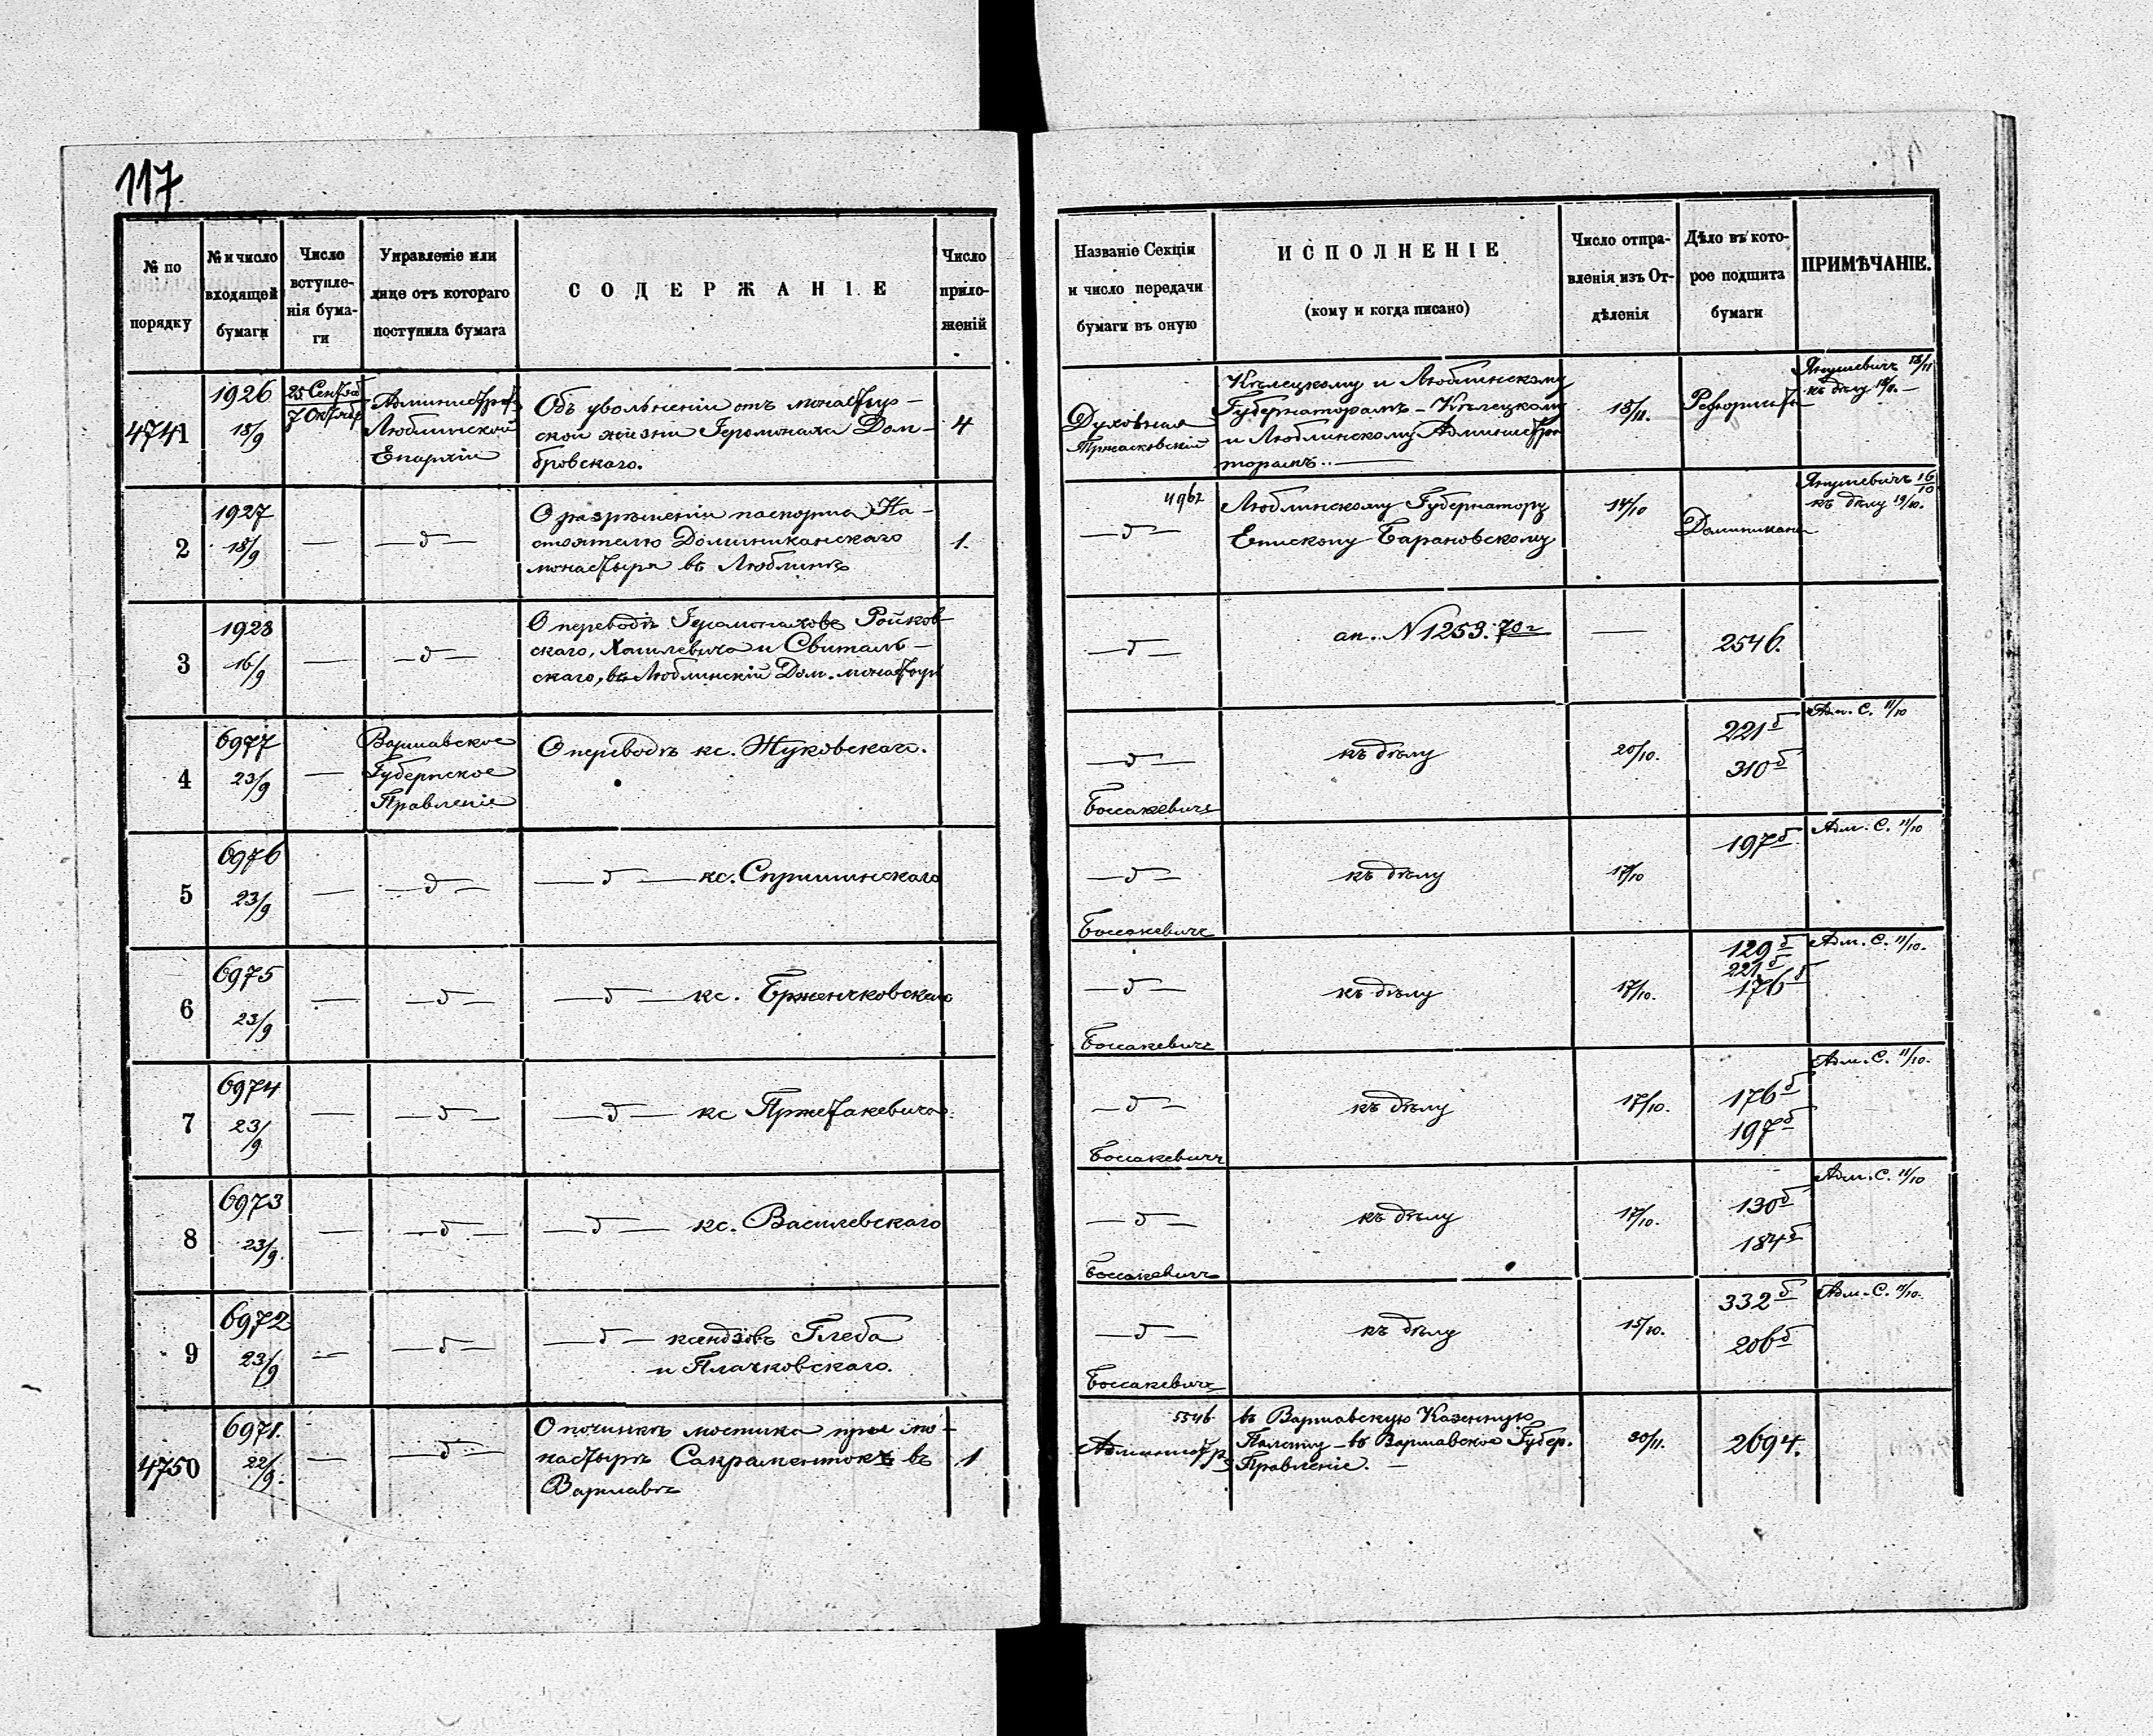 117
№ по порядку
№ и число входящей бумаги
Число вступле-
нія бума-
ги
Управленіе или
лице отъ котораго
поступила бумага
СОДЕРЖАНІЕ
Число
прило-
женій
Названіе Секціи
и число передачи
бумаги въ оную
ИСПОЛНЕНІЕ
(кому и когда писано)
Число отпра-
вленія изъ От-
дѣленія
Дѣло въ кото-
рое подшита
бумаги
ПРИМѢЧАНІЕ.
4741
1926
18/9
25 Сентяб
7 Октяб
Администрат
Люблинской
Епархіи
Объ увольненіи отъ монастыр-
ской жизни Іеромонаха Дом-
бровскаго.
4
Духовная
Кѣлецкому и Люблинскому
Губернаторамъ - Кѣлецкому
и Люблинскому Администра
торамъ.
18/11.
Реформаты
Янушевичъ 18/11
къ дѣлу
2
1927
18/9
— д —
О разрѣшеніи паспорта На-
стоятелю Доминиканскаго
монастыря въ Люблинѣ
1.
4962
— д —
Люблинскому Губернатору
Епископу Барановскому
14/10
Доминикане
Янушевичъ 16/10
къ дѣлу 19/10.
3
1928
16/9
— д —
О переводѣ Іеромонаховъ Ройков-
скаго, Хмилевича и Свиталь-
скаго, въ Люблинскій Дом. монастырь
— д —
ап. N 1253. 70 г
2546.
4
6977
23/9
Варшавское
Губернское
Правленіе
О переводѣ кс. Жуковскаго.
— д —
Боссакевичъ
къ дѣлу
20/10.
221 б
310 б
Адм. С. 11/10
5
6976
23/9
— д —
— д — кс.
— д —
Боссакевичъ
къ дѣлу
17/10
197 б
Адм. С. 11/10
6
6975
23/9
— д —
— д — кс. Брженчковскаго
— д —
Боссакевичъ
къ дѣлу
17/10.
129 б
221 б
176 б
Адм. С. 11/10.
7
6974
23/9
— д —
— д — кс Пржетакевича.
— д —
Боссакевичъ
къ дѣлу
17/10.
176 б
197 б
Адм. С. 11/10.
8
6973
23/9.
— д —
— д — кс. Василевскаго
— д —
Боссакевичъ
къ дѣлу
17/10.
130 б
184 б
Адм. С. 11/10
9
6972
23/9
— д —
— д — ксендзовъ Глеба
и Плачковскаго.
— д —
Боссакевичъ
къ дѣлу
15/10.
332 б
206 б
Адм. С. 11/10.
4750
6971.
22/9.
— д —
О починкѣ мостика при мо-
настырѣ Сакраментокъ въ
Варшавѣ
1
5546
Администр
въ Варшавскую Казенную
Палату - въ Варшавское Губер.
Правленіе. —
30/11.
2694.